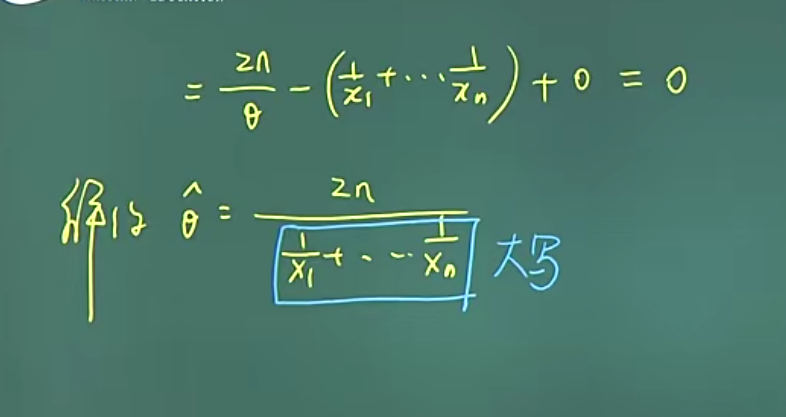 = 2n/θ − (1/x₁ + ⋯ 1/xₙ) + 0 = 0
解得 θ̂ = 2n / (1/X₁ + ⋯ 1/Xₙ) 大写